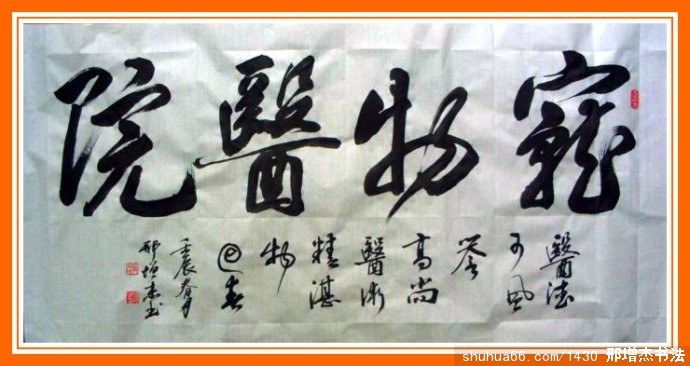 寵物醫院
醫德
可風
高尚
醫術
精湛
物
回春
壬辰春月
邢增杰书
shuhua66.com/1430 邢增杰书法